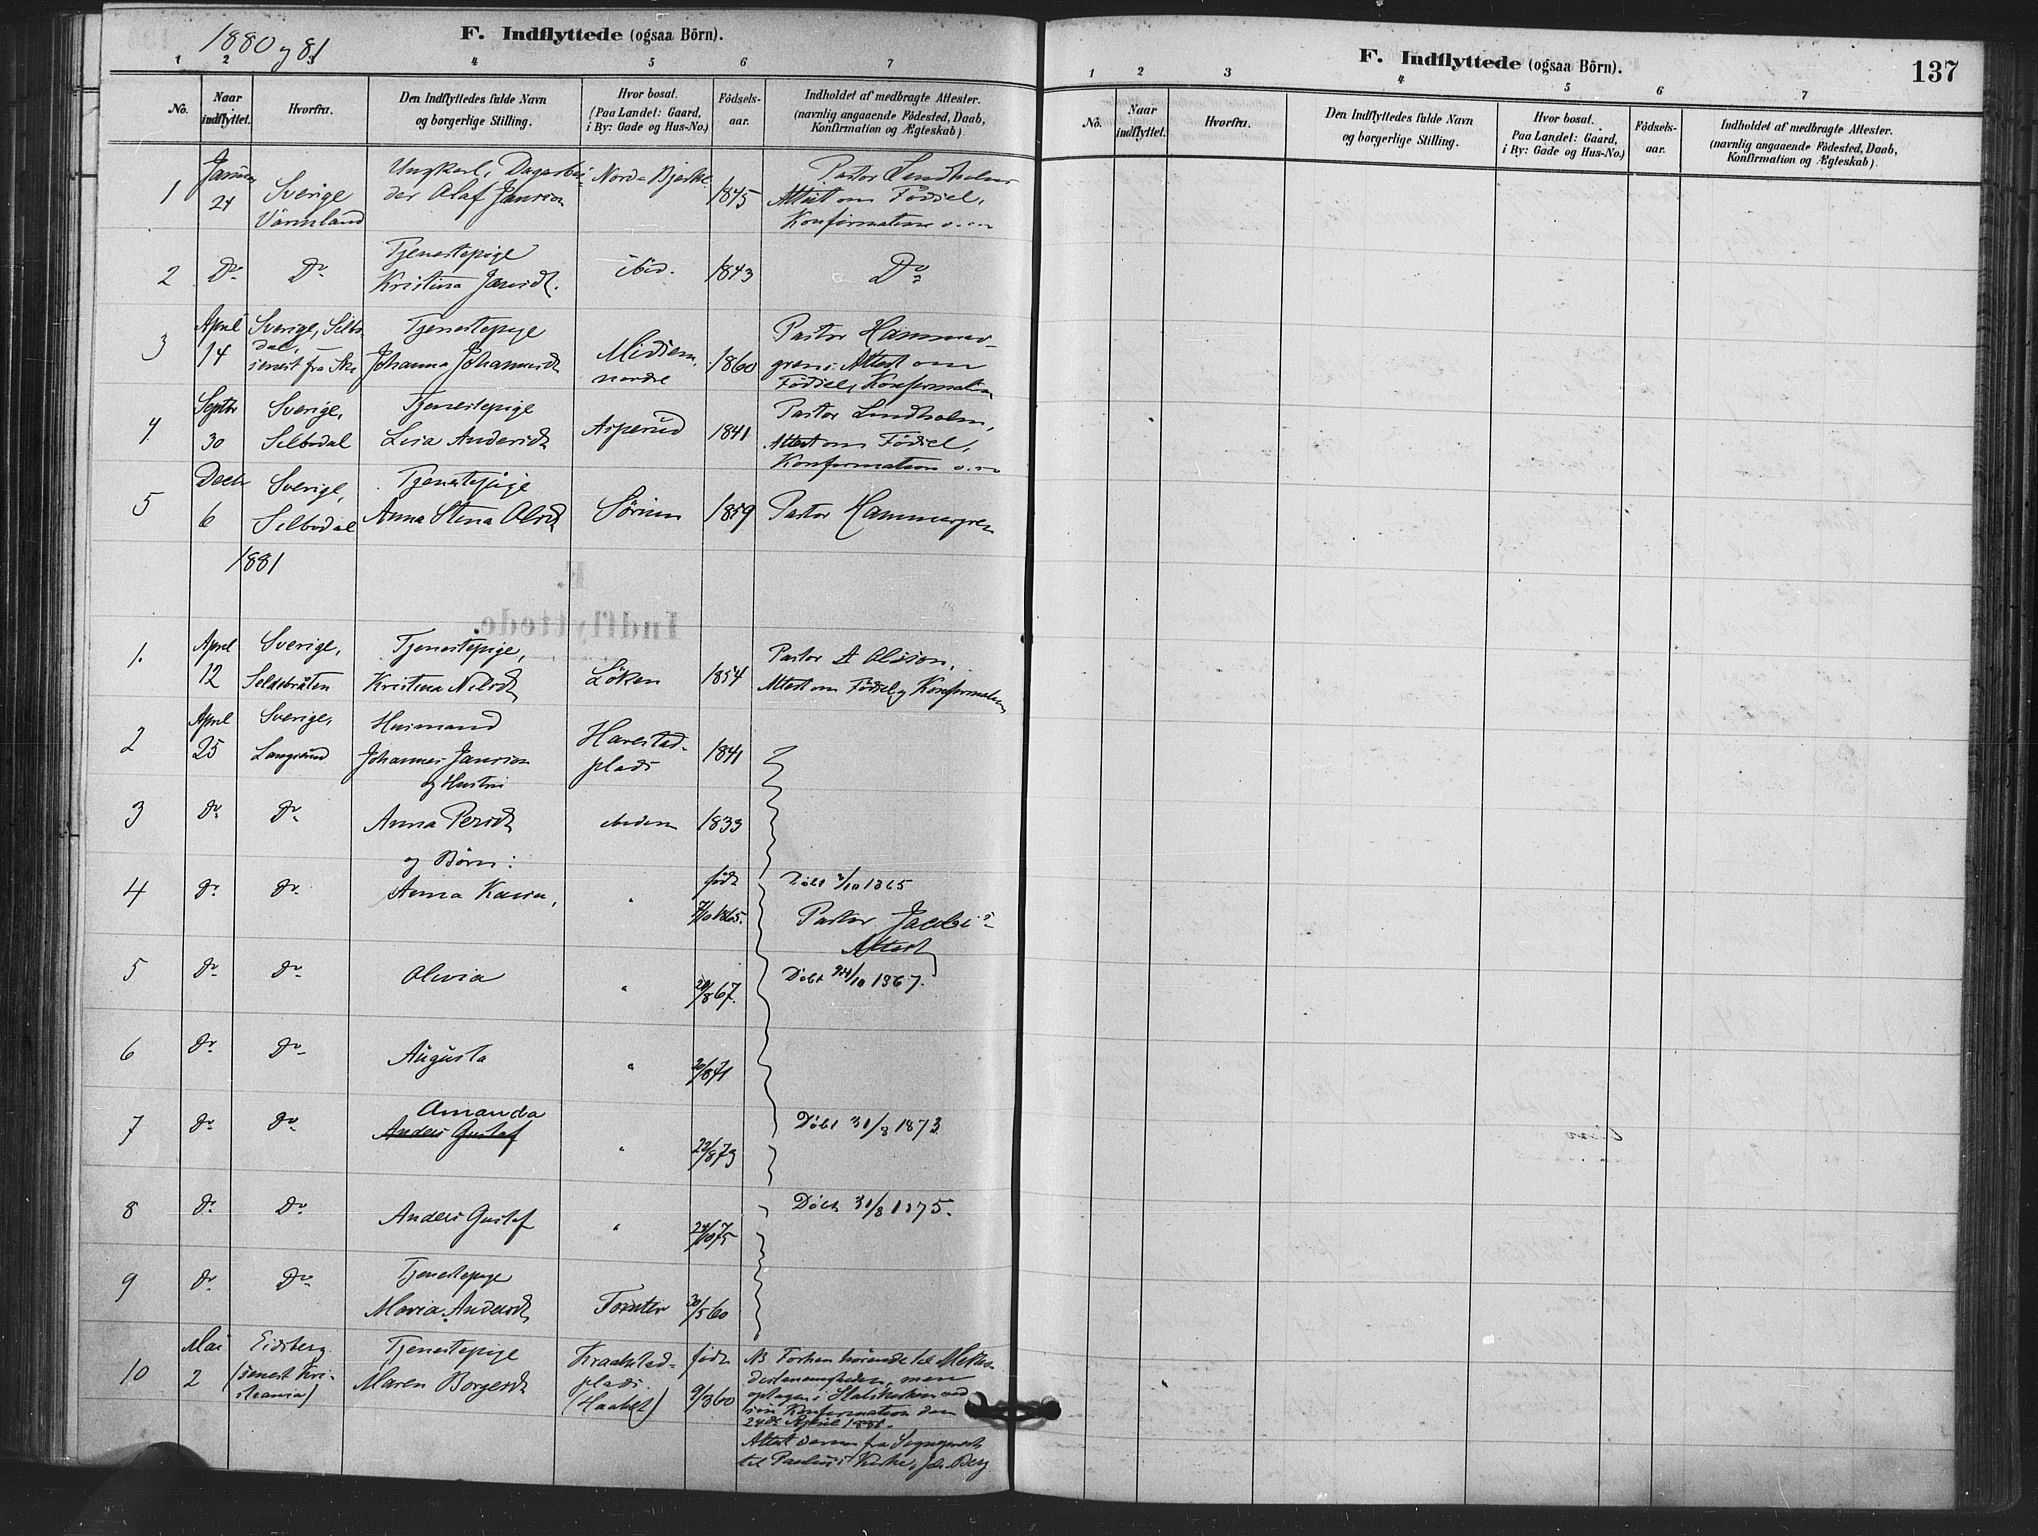 1880 og 81
F. Indflyttede (ogsaa Börn).
1 2 3 4 5 6 7
No.
Naar indflyttet.
Hvorfra.
Den Indflyttedes fulde Navn og borgerlige Stilling.
Hvor bosat. (Paa Landet: Gaard, i By: Gade og Hus-No.)
Födsels-aar.
Indholdet af medbragte Attester. (navnlig angaaende Födested, Daab, Konfirmation og Ægteskab).
1 Januar 24 Sverige Värmland Ungkarl, Dagarbeider Olaf Janson Nord-Bjerke 1845 Pastor Lindholms Attest om Födsel, Konfirmation
2 Do Do Tjenestepige Kristina Jansdt. ibid. 1843 Do
3 April 14 Sverige, Silbodal, senest fra Ski Tjenestepige Johanna Johannesdt Midsem nordre 1860 Pastor Hammergrens Attest om Födsel, Konfirmation
4 Septbr 30 Sverige, Silbodal Tjenestepige Lisa Andersdt Asperud 1841 Pastor Lindholm, Attest om Födsel, Konfirmation
5 Decbr 6 Sverige, Silbodal Tjenestepige Anna Stina Olsdt Sörum 1859 Pastor Hammergren
1881
1. April 12 Sverige, Tjenestepige, Kristina Nilsdt Löken 1854 Pastor Olsson, Attest om Födsel og Konfirmation
2 April 25 Sverige, Langserud Husmand Johannes Janson og Hustru Harestad-plads 1841
3 Do Do Anna Persdt ibidem 1833
og Börn:
4 Do Do Anna Karin, " födt 7/10 1865. Döbt 1865
Pastor Jacobi's Attest
5 Do Do Olivia " 20/8 67. Döbt 24/10 1867.
6 Do Do Augusta " 20/8 71
7 Do Do Amanda Anders Gustaf " 23/8 73 Döbt 31/8 1873
8 Do Do Anders Gustaf " 75 Döbt 31/8 1875.
9 Do Do Tjenestepige Maria Andersdt Tomter 30/5 60
10 Mai 2 Eidsberg (senest Kristiania) Tjenestepige Maren Borgersdt Kraakstad-plads (Haabet) födt 9/3 60 NB Forhen hörende til Methodistmenigheden, men optagen i Statskirken ved sin Konfirmation den 24de April 1881.
Attest derom fra Sognepræst til Paulus Kirke, Berg
F. Indflyttede (ogsaa Börn).
137
1 2 3 4 5 6 7
No.
Naar indflyttet.
Hvorfra.
Den Indflyttedes fulde Navn og borgerlige Stilling.
Hvor bosat. Paa Landet: Gaard, i By: Gade og Hus-No.)
Födsels-aar.
Indholdet af medbragte Attester. (navnlig angaaende Födested, Daab, Konfirmation og Ægteskab).